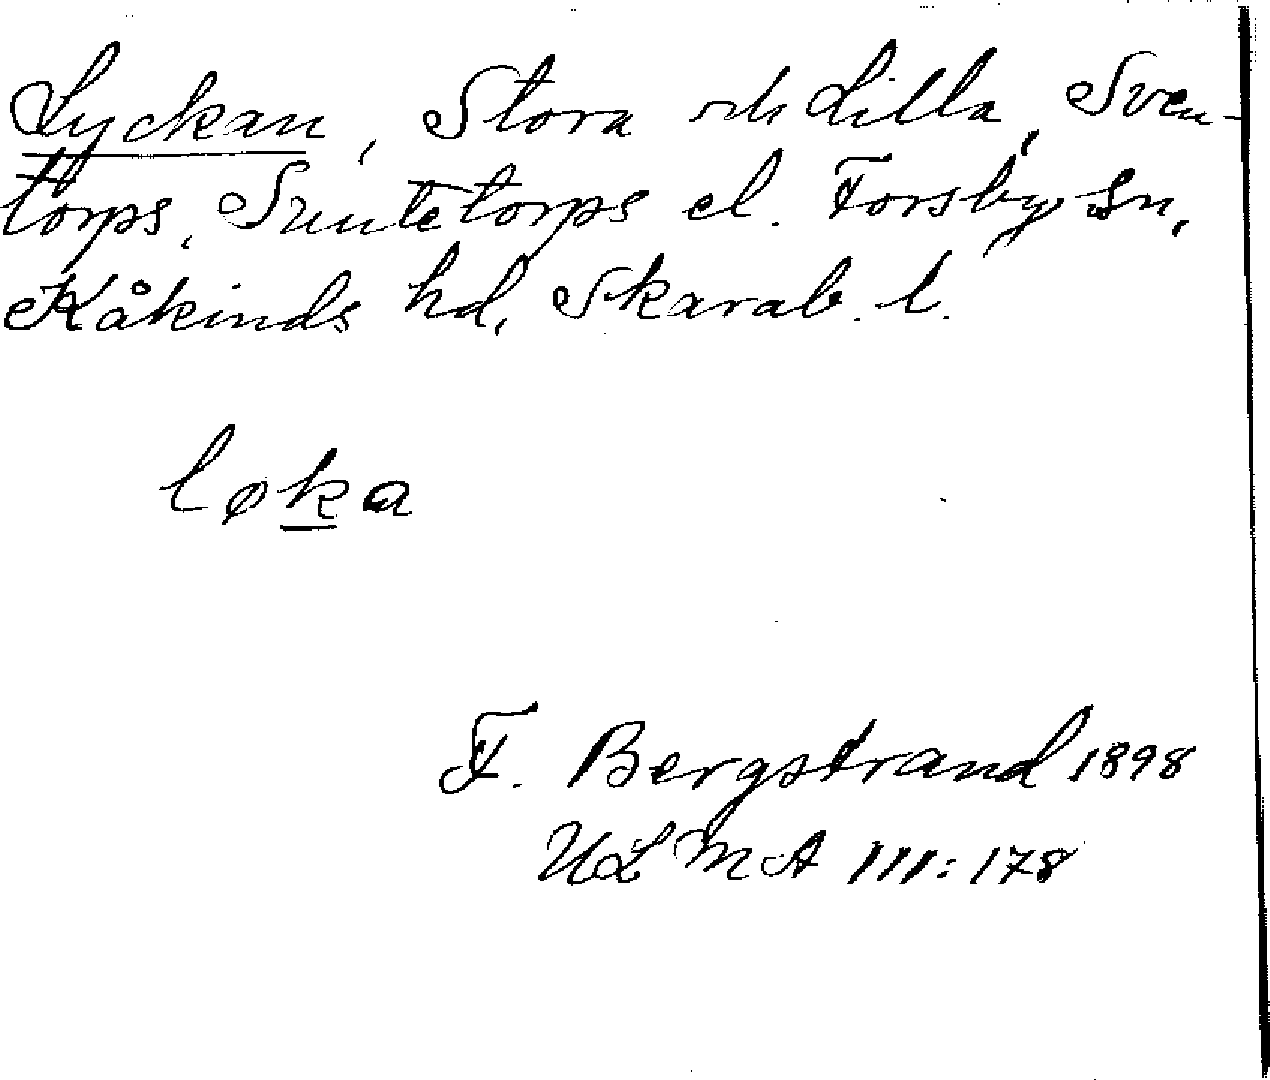 Lyckan, Stora och Lilla, Sven-
torps, Suntetorps el. Forsby sn,
Kåkinds hd, Skarab. l.
løka
F. Bergstrand 1898
ULMA 111:178